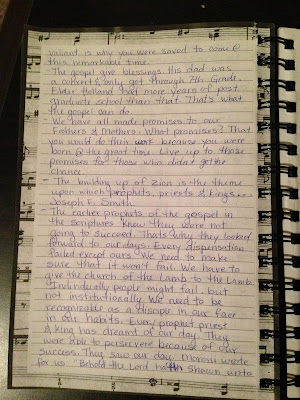 valiant is why you were saved to come @
this remarkable time.
-The gospel give blessings. His dad was
a convert & only got through 7th Grade.
Elder Holland had more years of post
graduate school than that. That's what
the gospel can do.
-We have all made promises to our
Fathers & Mothers. What promises? That
you would do their work because you were
born @ the great time. Live up to those
promises for those who didn't get the
chance.
-"The building up of Zion is the theme
upon which prophets, priests & kings"-
Joseph F. Smith
-The earlier prophets of the gospel in
the scriptures knew they were not
going to succeed. That's why they looked
forward to our days. Every dispensation
failed except ours. We need to make
sure that it won't fail. We have to
give the church of the Lamb to the Lamb.
Individually people might fail, but
not institutionally. We need to be
recognizable as a disciple in our face
in our habits. Every prophet priest
& king has dreamt of our day. They
were able to persevere because of our
success. They saw our day. Moroni wrote
for us. "Behold the Lord hath shown unto